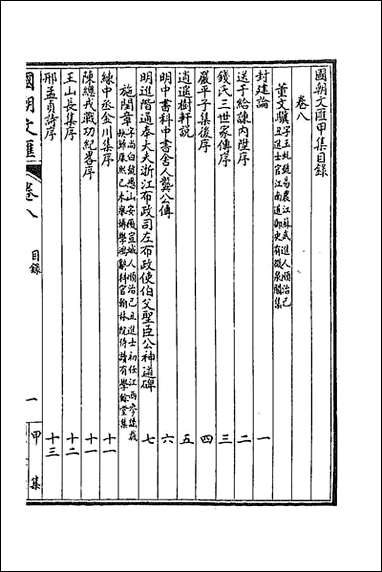 國朝文匯甲集目錄
卷八
董文驥 字玉虬號易農江蘇武進人順治己
丑進士官江南道御史有微泉閣集
封建論 一
送子給諫內陞序 二
錢氏三世家傳序 三
嚴平子集後序 四
逍遙樹軒説 五
明中書科中書舍人龔公傳 六
明進階通奉大夫浙江布政司左布政使伯父聖臣公神道碑 七
施閏章 字尚白號愚山安徽宣城人順治己丑進士初任江西參議裁
缺歸康熙己未舉博學鴻辭科官翰林院侍讀有學餘堂集
綠中丞金川集序 十一
陳總戎戰功紀畧序 十一
王山長集序 十二
邢孟貞詩序 十三
國朝文匯 卷八 目錄 一 甲集